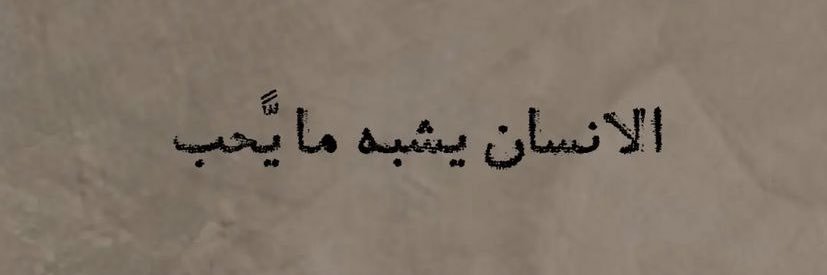 الانسان يشبه مايًّحب